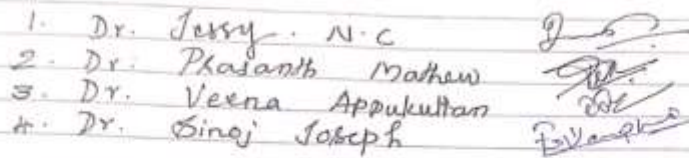 1. Dr. Jessy. N.C
2. Dr. Prasanth Mathew
3. Dr. Veena Appukuttan
4. Dr. Sinoj Joseph